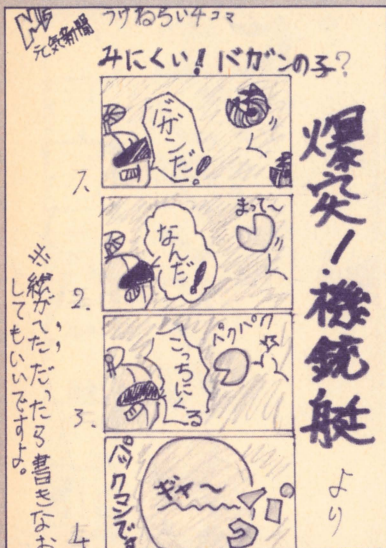 元気新聞
つけねらい4コマ
みにくい！バガンの子？
爆突！機銃艇
より
1.
バガンだ！
2.
まって〜
なんだ！
3.
パクパク
こっちにくる
4
ギャ〜
パックマンです
※絵がへただったら書きなお
してもいいですよ。